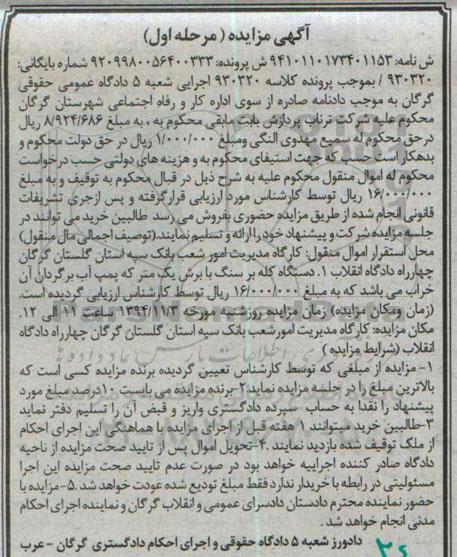 آگهی مزایده (مرحله اول)
ش نامه: ۹۴۱۰۱۱۰۱۷۳۴۰۱۱۵۳ ش پرونده: ۹۲۰۹۹۸۰۰۵۶۴۰۰۳۳۳ شماره بایگانی:
۹۳۰۳۲۰ / بموجب پرونده کلاسه ۹۳۰۳۲۰ اجرایی شعبه ۵ دادگاه عمومی حقوقی
گرگان به موجب دادنامه صادره از سوی اداره کار و رفاه اجتماعی شهرستان گرگان
محکوم علیه شرکت ترناب پردازش بابت مابقی محکوم به، به مبلغ ۸/۹۲۴/۶۸۶ ریال
درحق محکوم له سمیع مهدوی النگی ومبلغ ۱/۰۰۰/۰۰۰ ریال در حق دولت محکوم و
بدهکار است حسب که جهت استیفای محکوم به و هزینه های دولتی حسب درخواست
محکوم له اموال منقول محکوم علیه به شرح ذیل در قبال محکوم به توقیف و به مبلغ
۱۶/۰۰۰/۰۰۰ ریال توسط کارشناس مورد ارزیابی قرارگرفته و پس ازجری تشریفات
قانونی انجام شده از طریق مزایده حضوری بفروش می رسد طالبین خرید می توانند در
جلسه مزایده شرکت و پیشنهاد خود را ارائه و تسلیم نمایند.(توصیف اجمالی مال منقول)
محل استقرار اموال منقول: کارگاه مدیریت امور شعب بانک سپه استان گلستان گرگان
چهارراه دادگاه انقلاب ۱. دستگاه کله بر سنگ با برش یک متر که پمپ آب برگردان آن
خراب می باشد که به مبلغ ۱۶/۰۰۰/۰۰۰ ریال توسط کارشناس ارزیابی گردیده است.
(زمان ومکان مزایده) زمان مزایده روزشنبه مورخه ۱۳۹۴/۱۱/۳ ساعت ۱۱ الی ۱۲.
مکان مزایده: کارگاه مدیریت امورشعب بانک سپه استان گلستان گرگان چهارراه دادگاه
انقلاب (شرایط مزایده)
۱- مزایده از مبلغی که توسط کارشناس تعیین گردیده برنده مزایده کسی است که
بالاترین مبلغ را در جلسه مزایده نماید ۲-برنده مزایده می بایست ۱۰درصد مبلغ مورد
پیشنهاد را نقدا به حساب سپرده دادگستری واریز و قبض آن را تسلیم دفتر نماید
۳-طالبین خرید میتوانند ۱ هفته قبل از اجرای مزایده با هماهنگی این اجرای احکام
از ملک توقیف شده بازدید نمایند. ۴-تحویل اموال پس از تایید صحت مزایده از ناحیه
دادگاه صادر کننده اجراییه خواهد بود در صورت عدم تایید صحت مزایده این اجرا
مسئولیتی در رابطه با خریدار ندارد فقط مبلغ تودیع شده عودت خواهد شد. ۵-مزایده با
حضور نماینده محترم دادستان دادسرای عمومی و انقلاب گرگان و نماینده اجرای احکام
مدنی انجام خواهد شد.
دادورز شعبه ۵ دادگاه حقوقی و اجرای احکام دادگستری گرگان - عرب